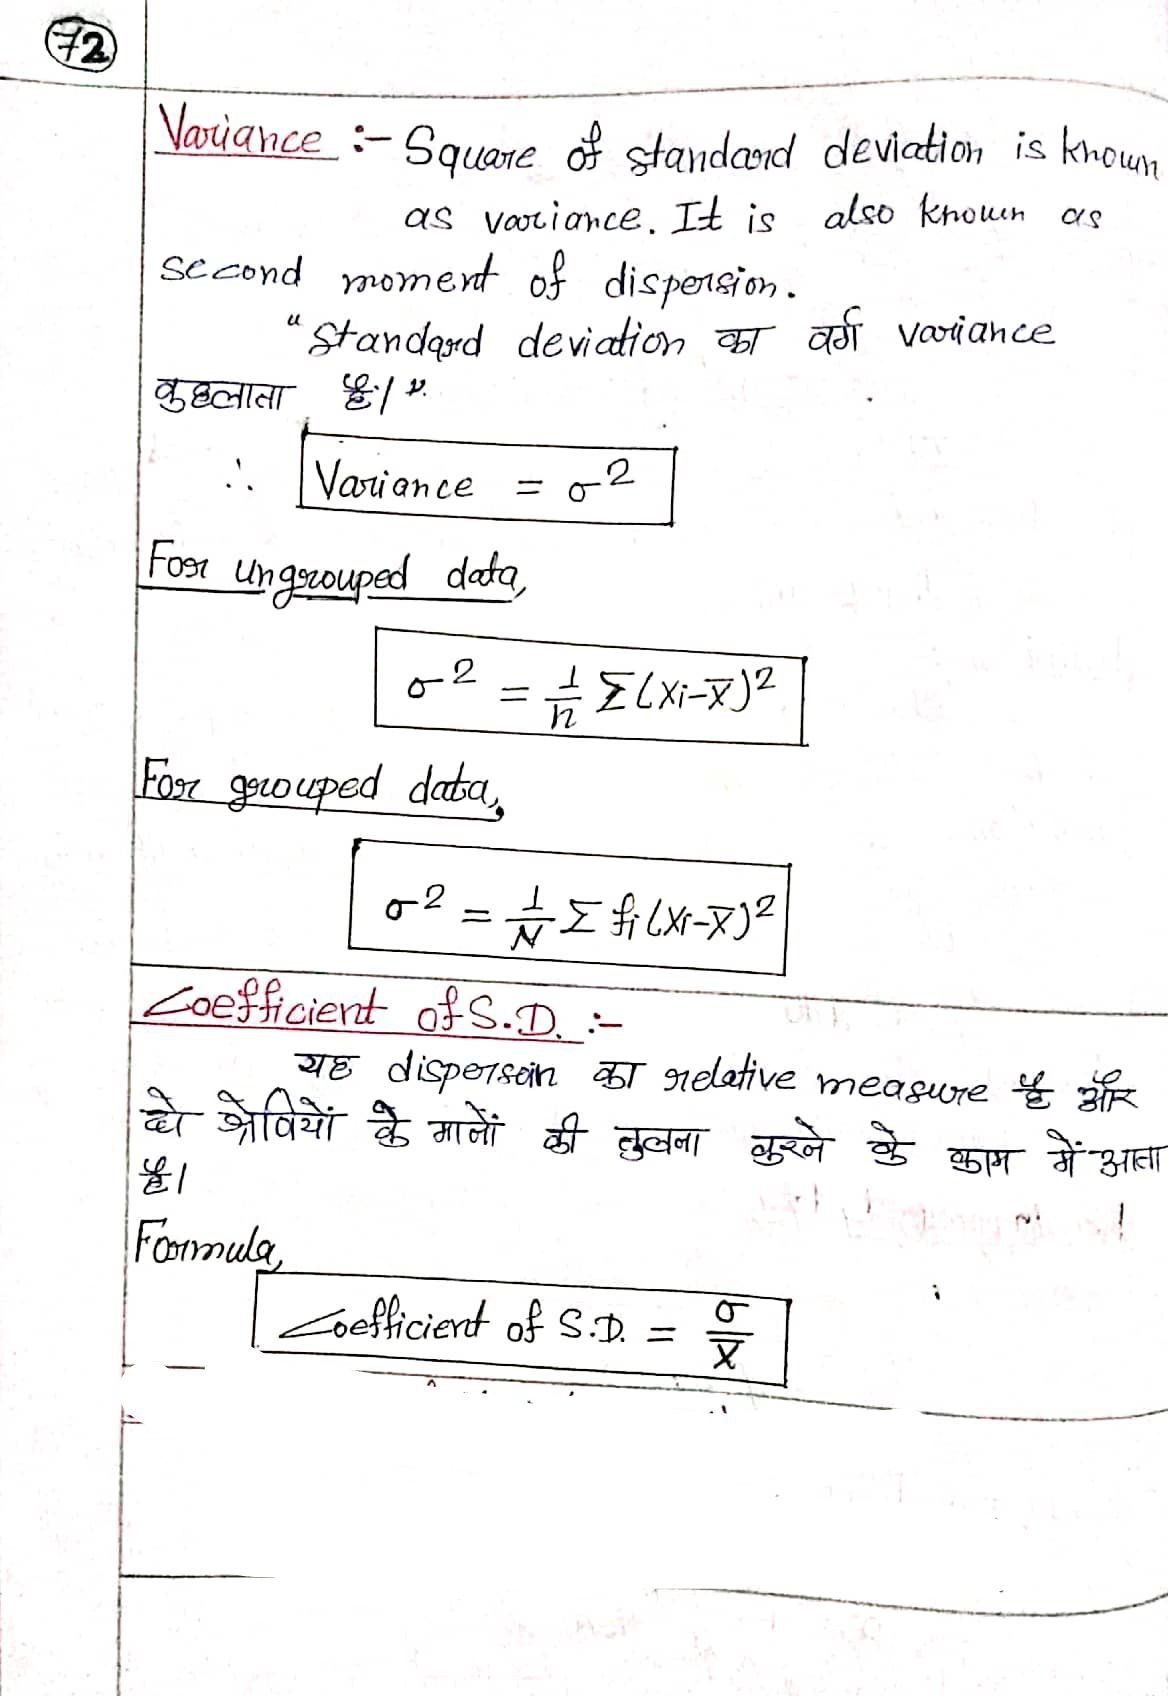 72
Variance :- Square of standard deviation is known
as variance. It is also known as
second moment of dispersion.
"Standard deviation का वर्ग variance
कहलाता है।"
∴ Variance = σ²
For ungrouped data,
σ² = 1/n Σ(Xi-X̅)²
For grouped data,
σ² = 1/N Σ fi(Xi-X̅)²
Coefficient of S.D. :-
यह dispersoin का relative measure है और
दो श्रेणियों के मानों की तुलना करने के काम में आता
है।
Formula,
Coefficient of S.D. = σ/X̅